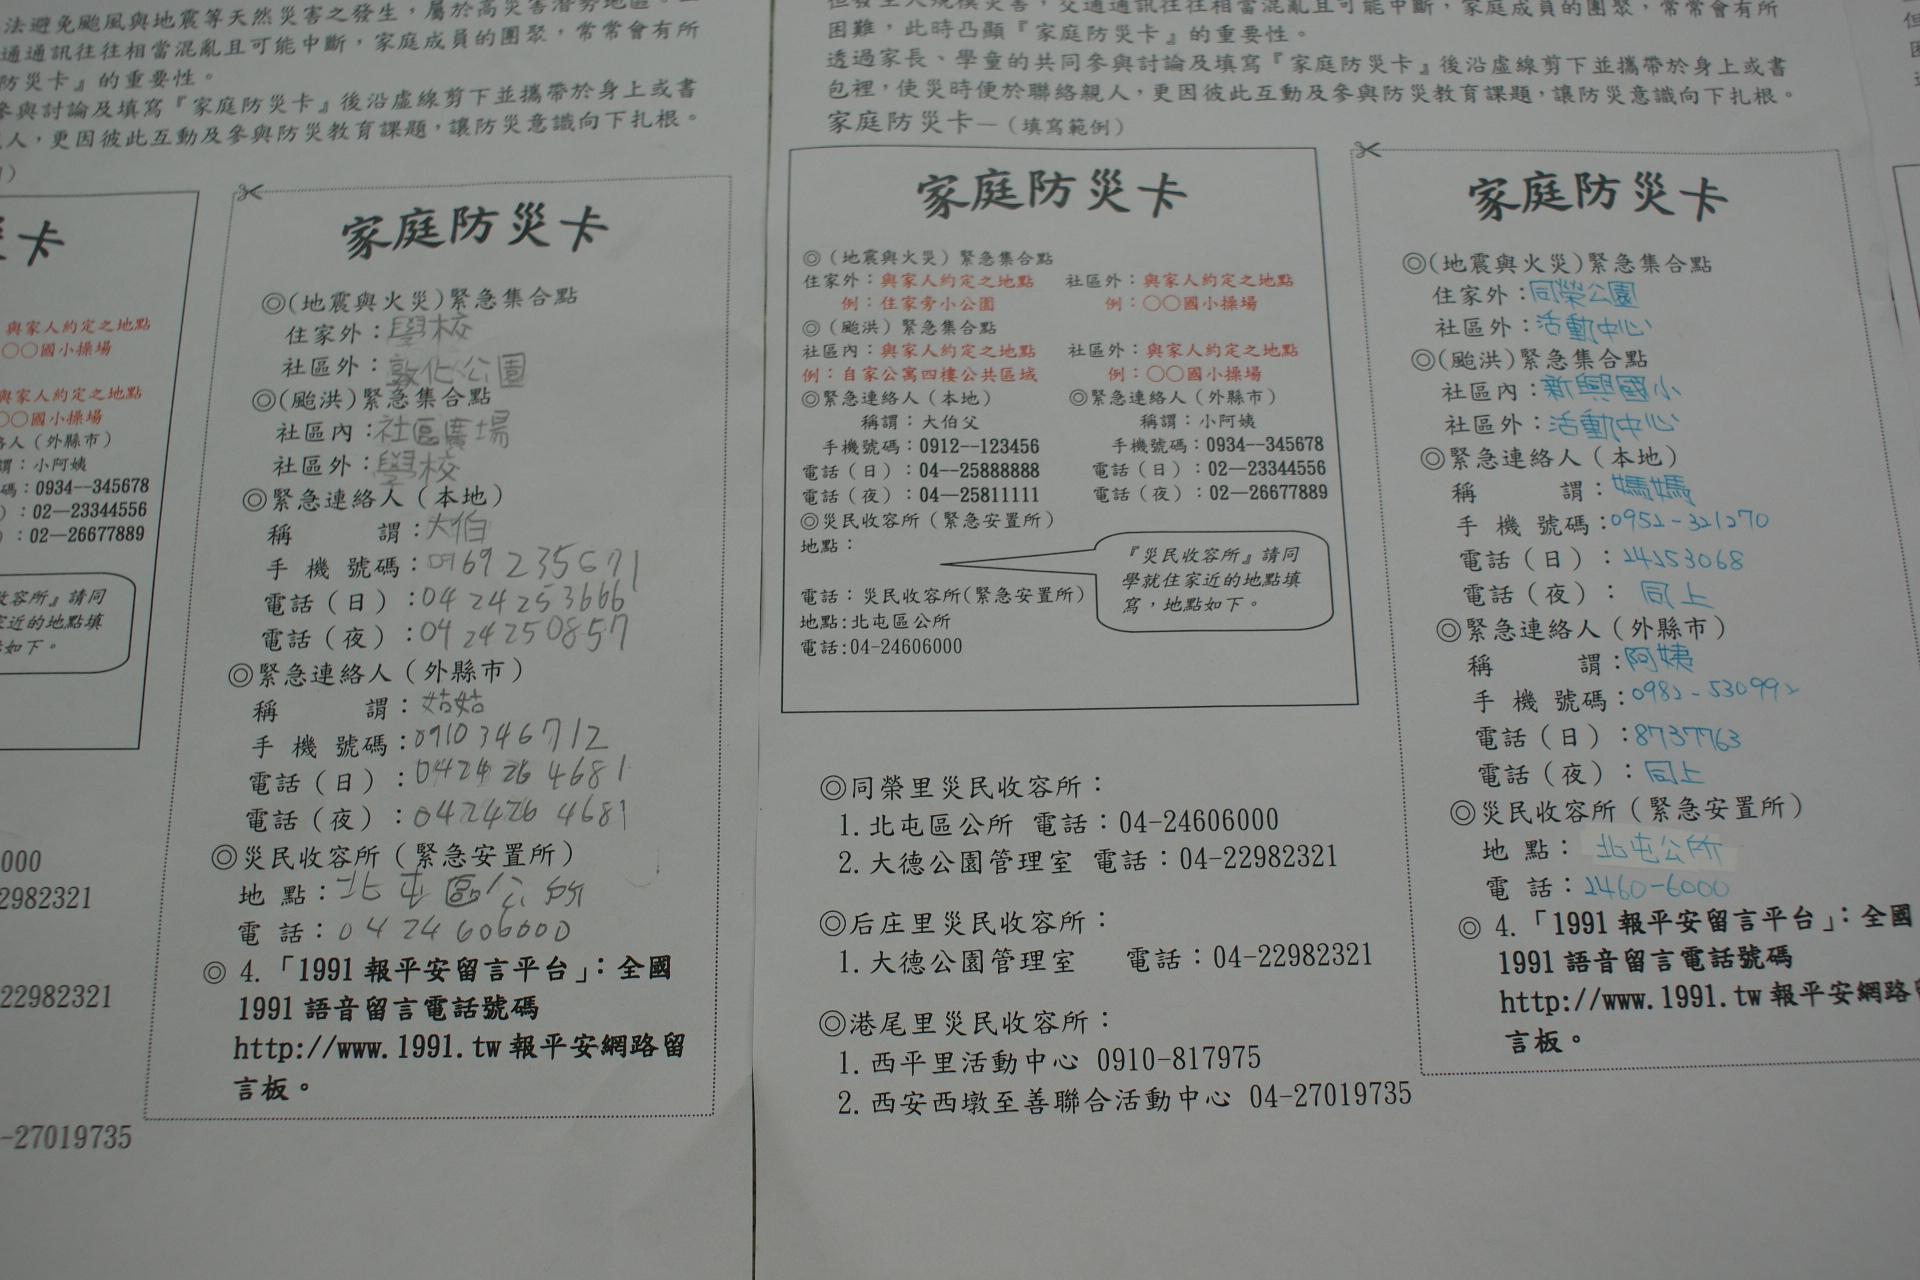 法避免颱風與地震等天然災害之發生，屬於高災害潛勢地區。
通通訊往往相當混亂且可能中斷，家庭成員的團聚，常常會有所
防災卡』的重要性。
參與討論及填寫『家庭防災卡』後沿虛線剪下並攜帶於身上或書
人，更因彼此互動及參與防災教育課題，讓防災意識向下扎根。
卡
與家人約定之地點
○○國小操場
與家人約定之地點
○○國小操場
人（外縣市）
謂：小阿姨
碼：0934--345678
）：02—23344556
）：02—26677889
收容所』請同
近的地點填
如下。
000
2982321
22982321
-27019735
家庭防災卡
◎(地震與火災)緊急集合點
住家外：學校
社區外：敦化公園
◎(颱洪)緊急集合點
社區內：社區廣場
社區外：學校
◎緊急連絡人（本地）
稱 謂：大伯
手 機 號碼：0969235671
電話（日）：0424253666
電話（夜）：0424250857
◎緊急連絡人（外縣市）
稱 謂：姑姑
手 機 號碼：0910346712
電話（日）：0424264681
電話（夜）：0424264681
◎災民收容所（緊急安置所）
地 點：北屯區公所
電 話：0424606000
◎ 4.「1991報平安留言平台」：全國
1991語音留言電話號碼
http://www.1991.tw報平安網路留
言板。
但發生大規模災害，交通通訊往往相當混亂且可能中斷，家庭成員的團聚，常常會有所
困難，此時凸顯『家庭防災卡』的重要性。
透過家長、學童的共同參與討論及填寫『家庭防災卡』後沿虛線剪下並攜帶於身上或書
包裡，使災時便於聯絡親人，更因彼此互動及參與防災教育課題，讓防災意識向下扎根。
家庭防災卡—（填寫範例）
家庭防災卡
◎（地震與火災）緊急集合點
住家外：與家人約定之地點 社區外：與家人約定之地點
例：住家旁小公園 例：○○國小操場
◎（颱洪）緊急集合點
社區內：與家人約定之地點 社區外：與家人約定之地點
例：自家公寓四樓公共區域 例：○○國小操場
◎緊急連絡人（本地） ◎緊急連絡人（外縣市）
稱謂：大伯父 稱謂：小阿姨
手機號碼：0912--123456 手機號碼：0934--345678
電話（日）：04--25888888 電話（日）：02—23344556
電話（夜）：04—25811111 電話（夜）：02—26677889
◎災民收容所（緊急安置所）
地點：
『災民收容所』請同
學就住家近的地點填
寫，地點如下。
電話：災民收容所(緊急安置所)
地點:北屯區公所
電話:04-24606000
◎同榮里災民收容所：
1.北屯區公所 電話：04-24606000
2.大德公園管理室 電話：04-22982321
◎后庄里災民收容所：
1.大德公園管理室 電話：04-22982321
◎港尾里災民收容所：
1.西平里活動中心 0910-817975
2.西安西墩至善聯合活動中心 04-27019735
家庭防災卡
◎(地震與火災)緊急集合點
住家外：同榮公園
社區外：活動中心
◎(颱洪)緊急集合點
社區內：新興國小
社區外：活動中心
◎緊急連絡人（本地）
稱 謂：媽媽
手 機 號碼：0952-321270
電話（日）：24253068
電話（夜）：同上
◎緊急連絡人（外縣市）
稱 謂：阿姨
手 機 號碼：0982-530992
電話（日）：8737763
電話（夜）：同上
◎災民收容所（緊急安置所）
地 點：北屯公所
電 話：2460-6000
◎ 4.「1991報平安留言平台」：全國
1991語音留言電話號碼
http://www.1991.tw報平安網路
言板。